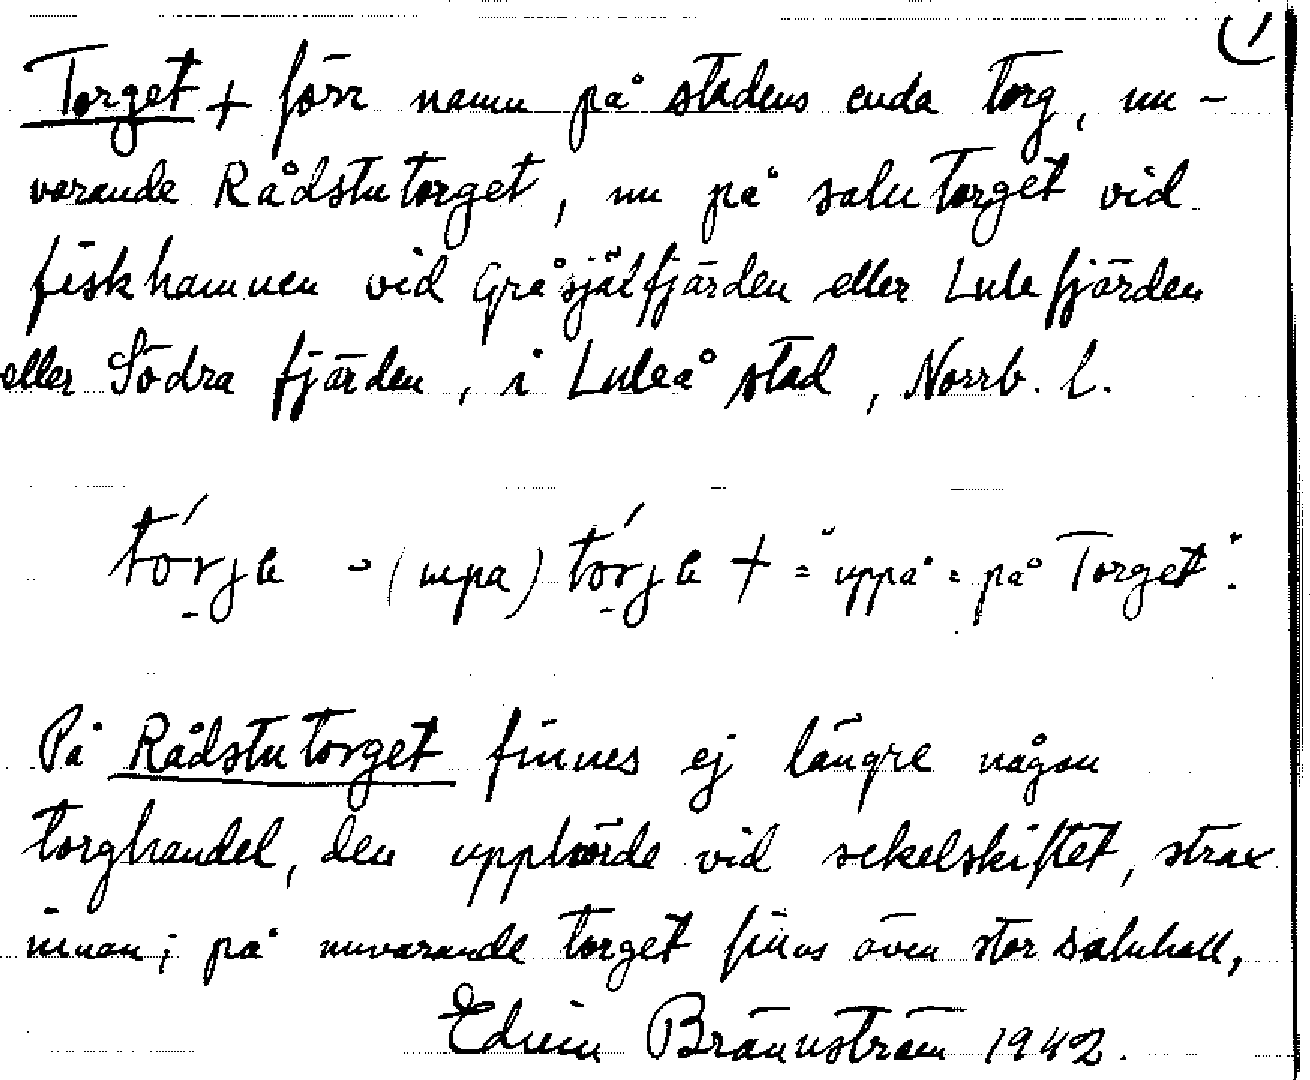 1
Torget + förr namn på stadens enda torg, nu-
varande Rådstutorget, nu på salutorget vid
fiskhamnen vid Gråsjälfjärden eller Lulefjärden
eller Södra fjärden, i Luleå stad, Norrb. l.
tórje - (upa) tórje + = "uppå = på Torget".
På Rådstutorget finnes ej längre någon
torghandel, den upphörde vid sekelskiftet, strax
innan; på nuvarande torget finns även stor saluhall,
Edvin Brännström 1942.